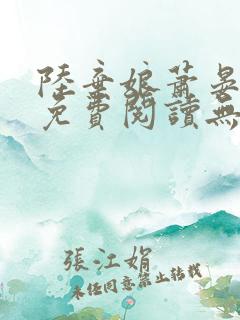 陸棄娘蕭晏
免費閱讀無
張江娟
未經同意禁止轉載